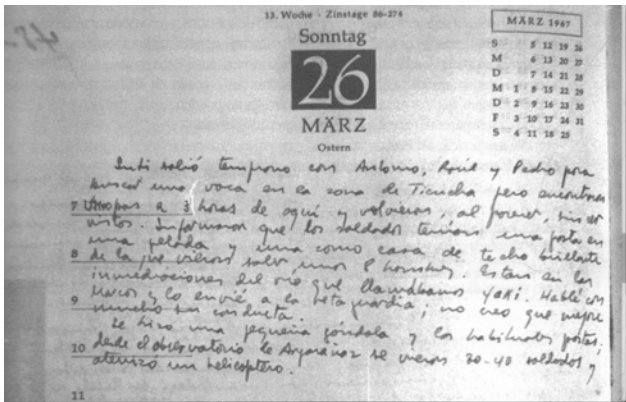 13. Woche · Zinstage 86-274
Sonntag
26
MÄRZ
Ostern
MÄRZ 1967
S 5 12 19 26
M 6 13 20 27
D 7 14 21 28
M 1 8 15 22 29
D 2 9 16 23 30
F 3 10 17 24 31
S 4 11 18 25
Inti salió temprano con Antonio, Raúl y Pedro para
buscar una vaca en la zona de Ticucha pero encontraron
7 tropas a 3 horas de aquí y volvieron, al parecer, sin ser
vistos. Informaron que los soldados tenían una posta en
una pelada y una como casa de techo brillante
8 de la que vieron salir unos 8 hombres. Están en las
inmediaciones del río que llamábamos Yaki. Hablé con
Marcos y lo envié a la retaguardia; no creo que mejore
9 mucho su conducta.
Se hizo una pequeña góndola y las habituales postas;
10 desde el observatorio de Argarañaz se vieron 30-40 soldados y
aterrizó un helicóptero.
11